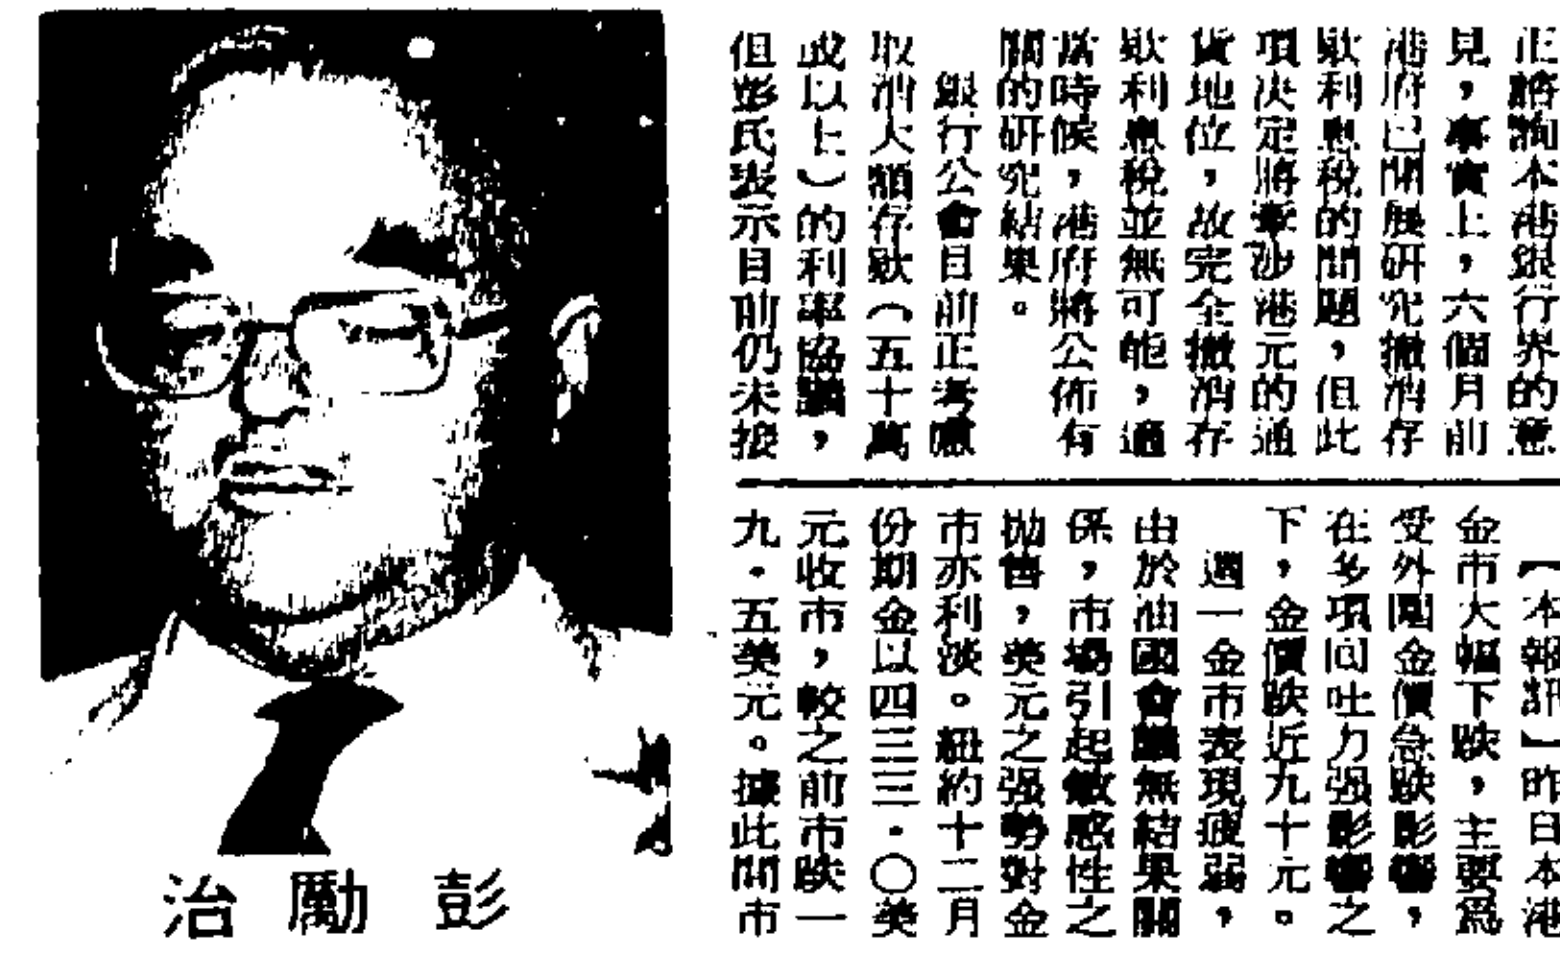 正諮詢本港銀行界的意
見，事實上，六個月前
港府已開展研究撤消存
欵利息稅的問題，但此
項決定將牽涉港元的通
貨地位，故完全撤消存
欵利息稅並無可能，適
當時候，港府將公佈有
關的研究結果。
銀行公會目前正考慮
取消大額存欵（五十萬
或以上）的利率協議，
但彭氏表示目前仍未接
【本報訊】昨日本港
金市大幅下跌，主要爲
受外圍金價急跌影響，
在多項回吐力强影響之
下，金價跌近九十元。
週一金市表現疲弱，
由於油國會議無結果關
係，市場引起敏感性之
拋售，美元之强勢對金
市亦利淡。紐約十二月
份期金以四三三·〇美
元收市，較之前市跌一
九·五美元。據此間市
彭勵治